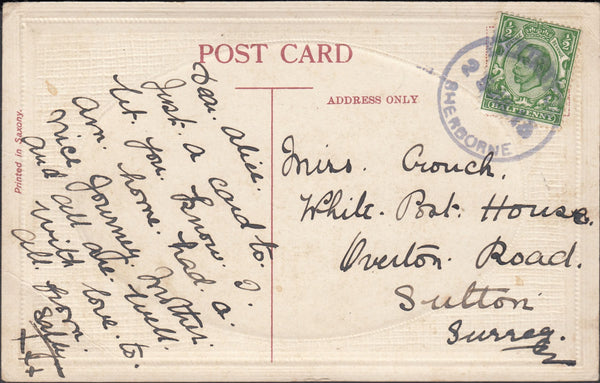 POST CARD
ADDRESS ONLY
Printed in Saxony.
½ ½
HALFPENNY
2
13
SHERBORNE
Dear. Alice.
Just. a card to.
let. you. know. I.
am. home. had. a.
nice Journey. Mother.
and all are well.
with love. to.
all. from.
Miss. Crouch.
White. Post. House.
Overton. Road.
Sutton
Surrey.